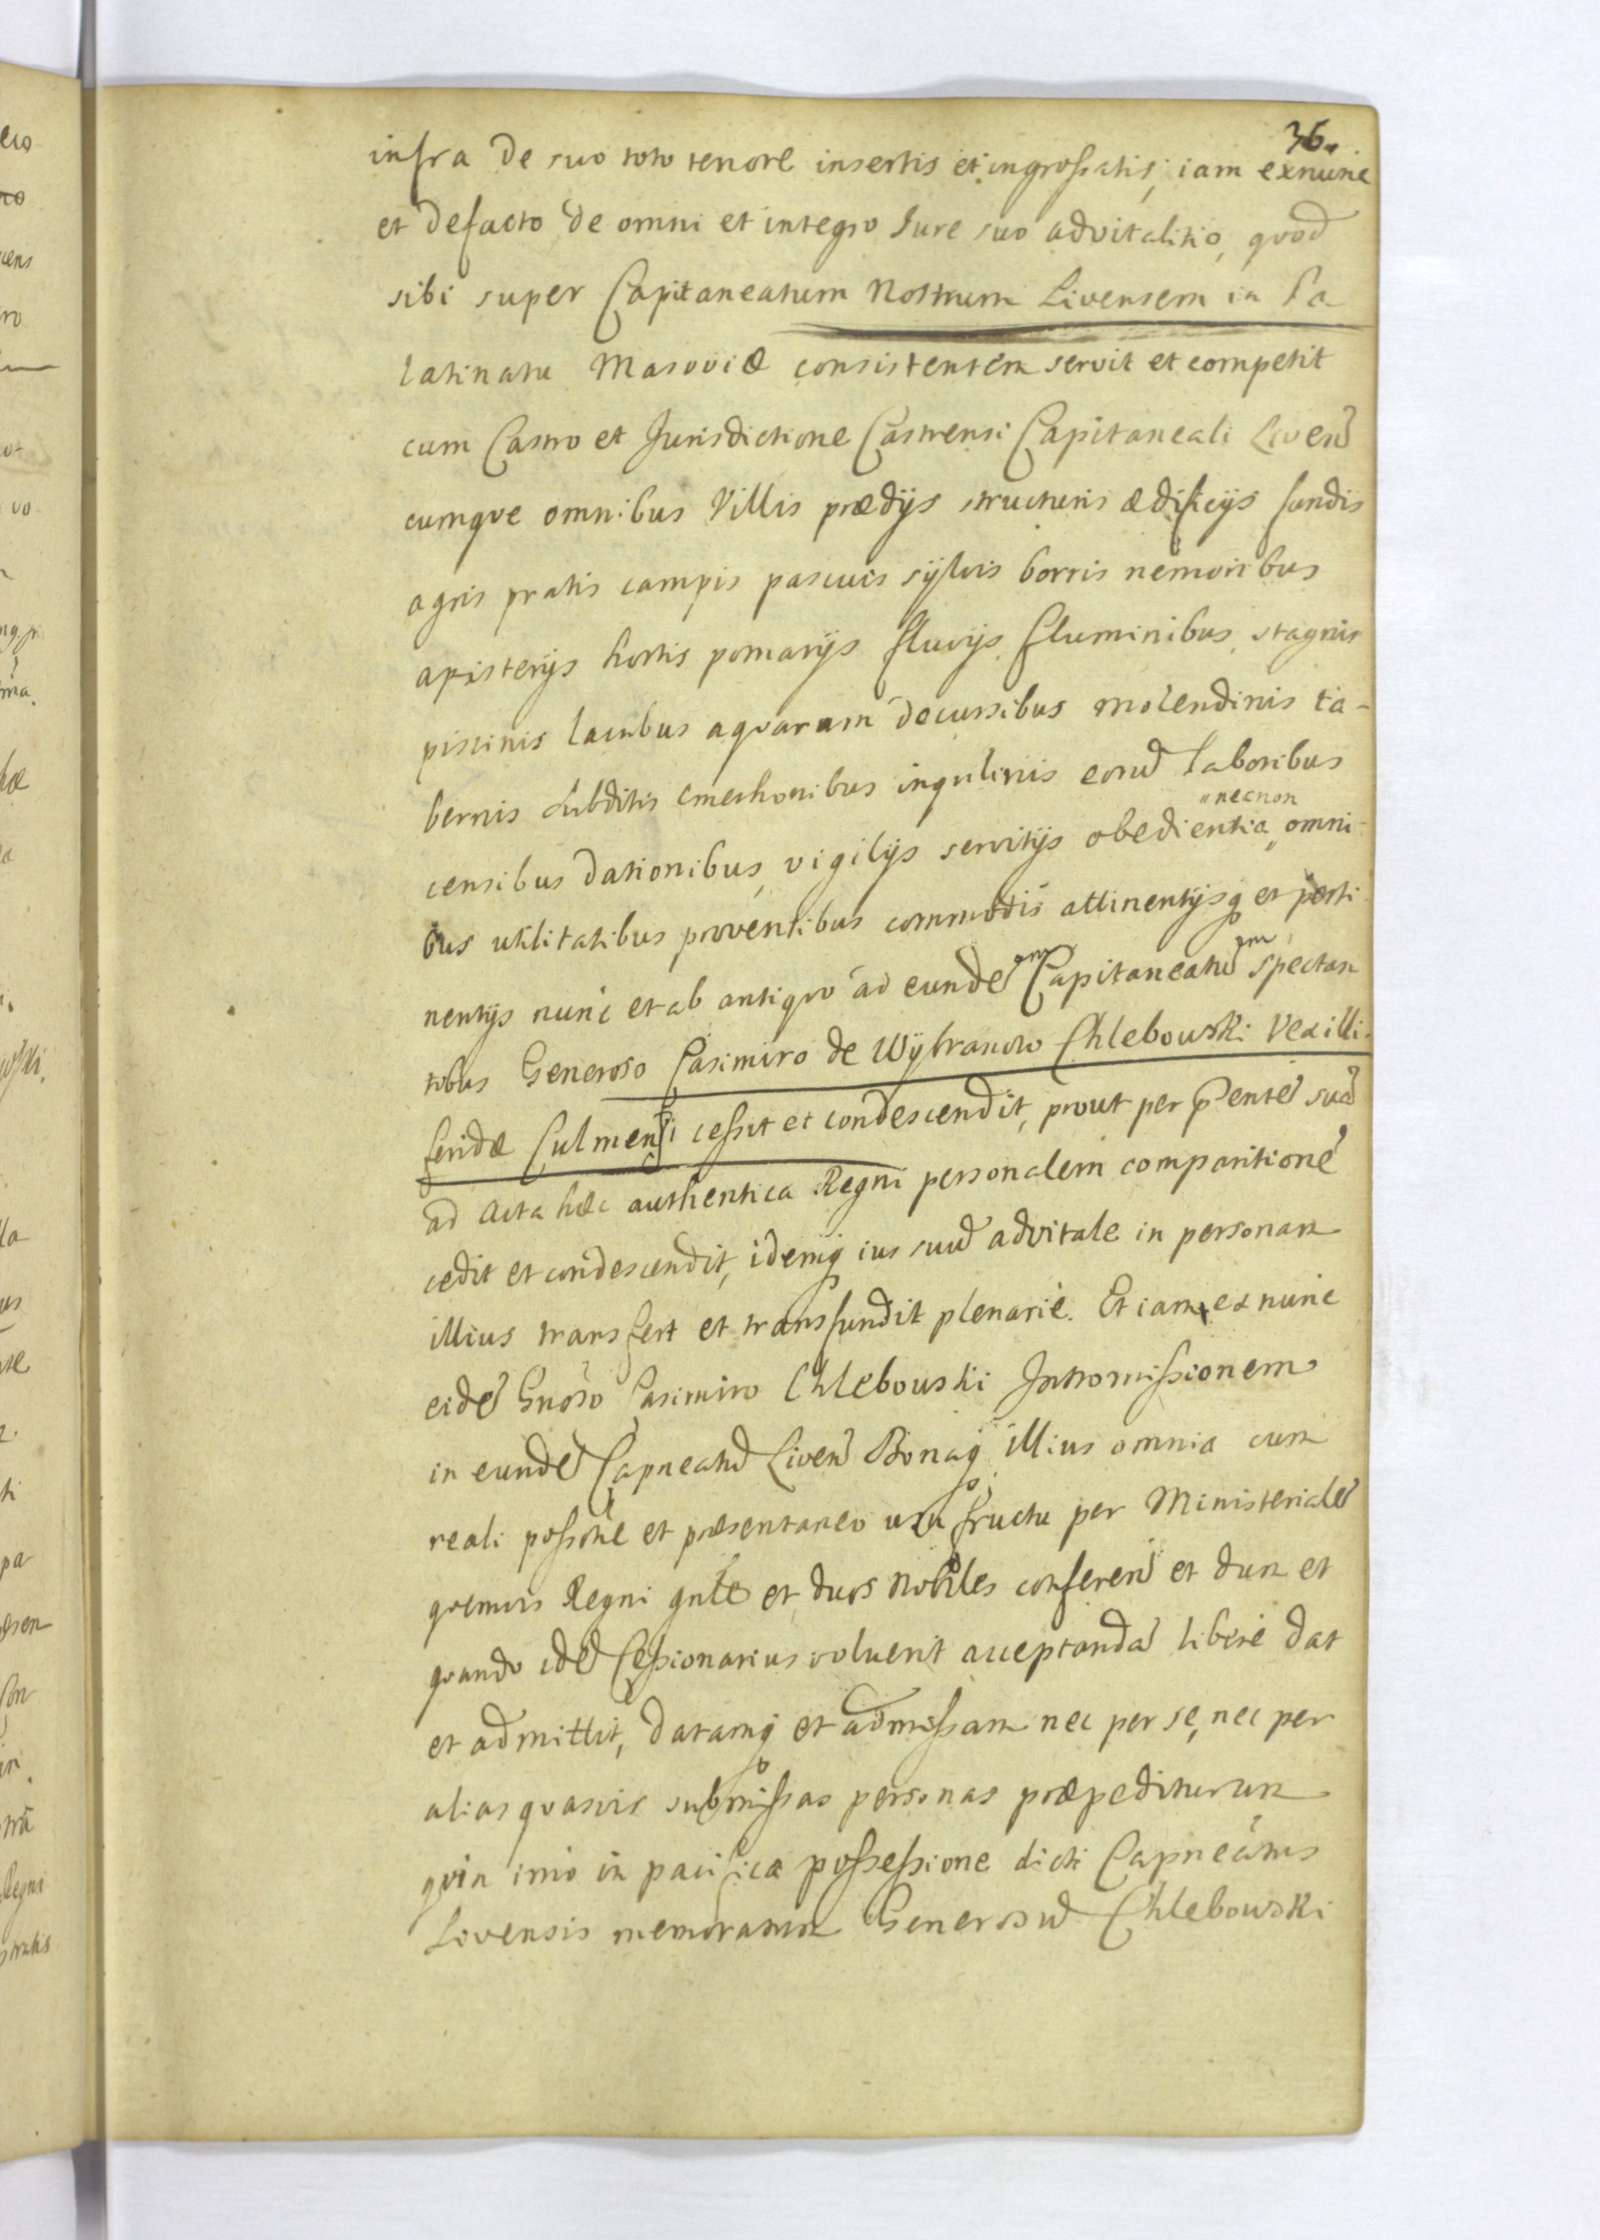 36.
infra de suo toto tenore insertis et ingrossatis, iam exnunc
et defacto de omni et integro Iure suo advitalitio, qvod
sibi super Capitaneatum Nostrum Livensem in Pa
latinatu Masoviæ consistentem servit et competit
cum Castro et Jurisdictione Castrensi Capitaneali Liven̄
cumqve omnibus Villis prædijs structuris ædificijs fundis
agris pratis campis pascuis sÿlvis borris nemoribus
apisterijs hortis pomarijs fluvijs fluminibus stagnis
piscinis lacubus aqvarum decursibus molendinis ta-
bernis subditis cmethonibus inqvilinis eorud̄ laboribus
censibus dationibus, vigilijs servitijs obedientia "necnon" omni-
bus utilitatibus proventibus commodis attinentijsq et perti
nentijs nunc et ab antiqvo ad eunde͞m Capitaneatu͞m spectan
tibus Generoso Casimiro de Wÿbranowo Chlebowski Vexilli-
feridæ Culmensi cessit et condescendit, prout per p̄entē suā
ad Acta hæc authentica Regni personalem comparitionē
cedit et condescendit, idemq ius suū advitale in personam
illius transfert et transfundit plenarie. Et iam ex nunc
eidē Gn̄oso Casimiro Chlebowski Intromissionem
in eundē Capneatū Liven̄ Bonaq illius omnia cum
reali possōne et præsentaneo usu fructu per Ministerialē
qvemvis Regni gn̄le et duos Nobiles conferen̄ et dum et
qvando idē Cessionarius voluerit acceptandā libere dat
et admittit, datamq et admissam nec per se, nec per
alias qvasvis submissas personas præpediturum
qvin imo in pacifica possessione dicti Capneatus
Livensis memoratum Generosū Chlebowski